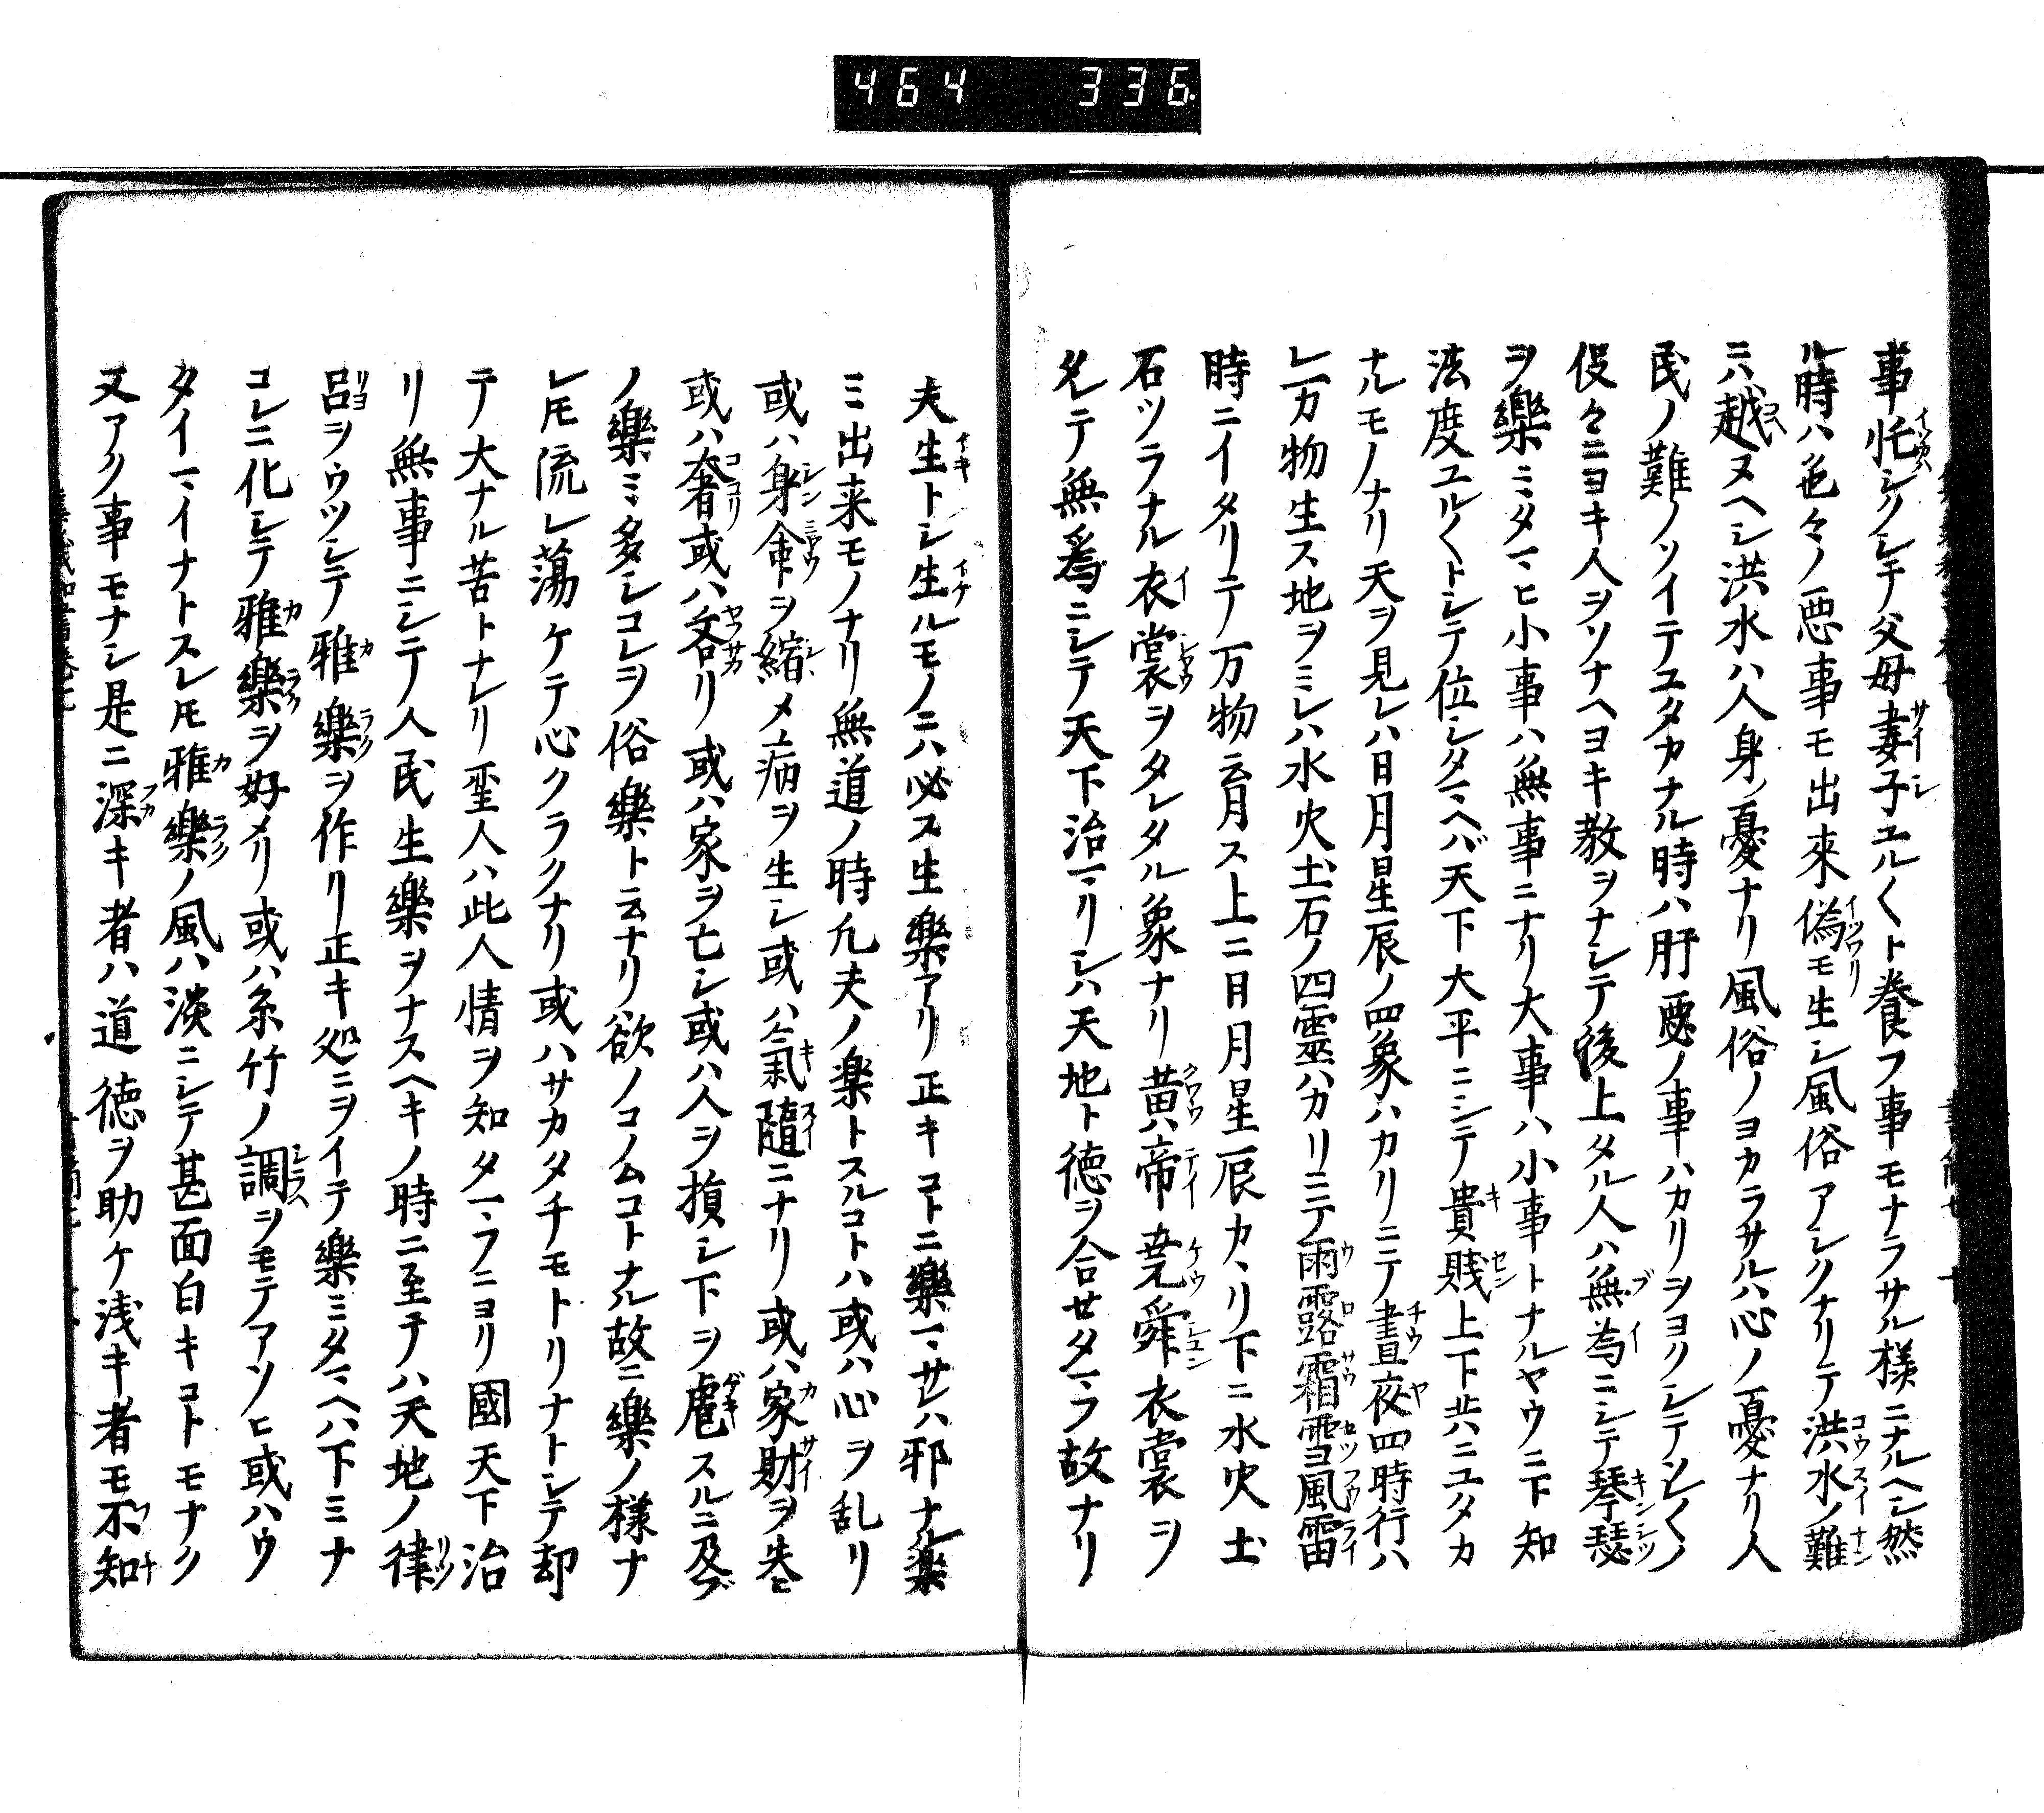 464 336
事忙シクシテ父母妻子ユル〱ト養フ事モナラサル様ニナルヘシ然
ル時ハ色々ノ悪事モ出来偽モ生シ風俗アシクナリテ洪水ノ難
ニハ越ヌヘシ洪水ハ人身ノ憂ナリ風俗ノヨカラサルハ心ノ憂ナリ人
民ノ難ノソイテユタカナル時ハ肝要ノ事ハカリヲヨリシテソレ〱ノ
役々ニヨキ人ヲソナヘヨキ教ヲナシテ後上タル人ハ無為ニシテ琴瑟
ヲ樂ミタマヒ小事ハ無事ニナリ大事ハ小事トナルヤウニ下知
法度ユル〱トシテ位シタマヘバ天下大平ニシテ貴賤上下共ニユタカ
ナルモノナリ天ヲ見レハ日月星辰ノ四象ハカリニテ晝夜四時行ハ
レ万物生ス地ヲミレハ水火土石ノ四靈ハカリニテ雨露霜雪風雷
時ニイタリテ万物云月ス上ニ日月星辰カヽリ下ニ水火土
石ツラナル衣裳ヲタレタル象ナリ黄帝堯舜衣裳ヲ
タレテ無爲ニシテ天下治マリシハ天地ト徳ヲ合セタマフ故ナリ
夫生トシ生ルモノニハ必ス生樂アリ正キコトニ樂マサレハ邪ナル楽
ミ出来モノナリ無道ノ時凡夫ノ楽トスルコトハ或ハ心ヲ乱リ
或ハ身命ヲ縮メ病ヲ生シ或ハ氣隨ニナリ或ハ家財ヲ失ヒ
或ハ奢或ハ吝リ或ハ家ヲ亡シ或ハ人ヲ損シ下ヲ虐スルニ及ブ
ノ樂ミ多シコレヲ俗樂ト云ナリ欲ノコノムコトナル故ニ樂ノ様ナ
レ𪜈流レ蕩ケテ心クラクナリ或ハサカタチモトリナトシテ却
テ大ナル苦トナレリ聖人ハ此人情ヲ知タマフニヨリ國天下治
リ無事ニシテ人民生樂ヲナスヘキノ時ニ至テハ天地ノ律
呂ヲウツシテ雅樂ヲ作リ正キ処ニヲイテ樂ミタマヘハ下ミナ
コレニ化シテ雅樂ヲ好メリ或ハ糸竹ノ調ヲモテアソヒ或ハウ
タイマイナトスレ𪜈雅樂ノ風ハ淡ニシテ甚面白キコトモナク
又アク事モナシ是ニ深キ者ハ道徳ヲ助ケ浅キ者モ不知